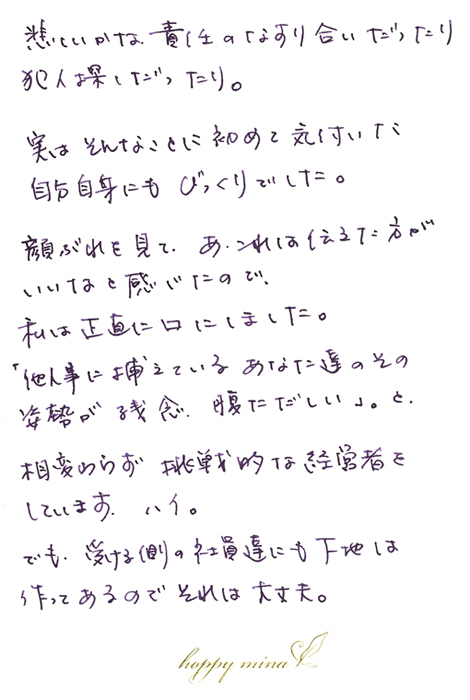 悲しいかな 責任のなすり合いだったり
犯人捜しだったり。
実は そんなことに 初めて気付いた
自分自身にも びっくりでした。
顔ぶれを見て、あ、これは伝えた方が
いいなと感じたので、
私は正直に口にしました。
「他人事に捕えている あなた達のその
姿勢が 残念、腹ただしい」。と、
相変わらず 挑戦的な経営者を
しています、ハイ。
でも、受ける側の社員達にも下地は
作ってあるので それは大丈夫。
happy mina